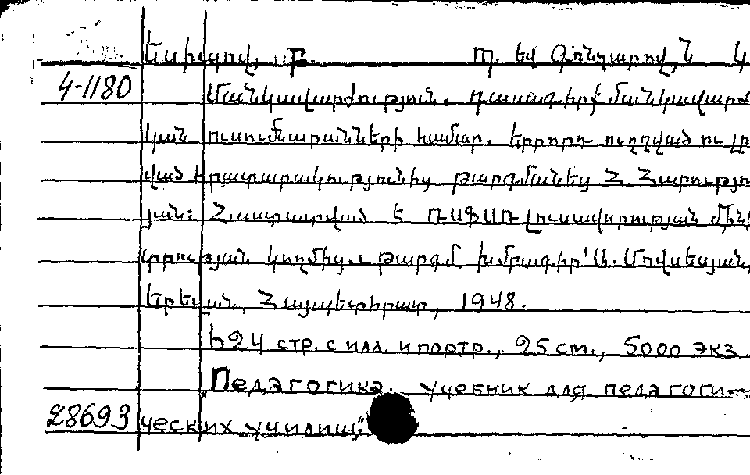 Եսիպով, Բ. Պ. եվ Գոնչարով, Ն
4-1180 Մանկավարժություն. դասագիրք մանկավարժ
կան ուսումնարանների համար. երրորդ ուղղված ու լր
ված հրատարակությունից թարգմանեց Հ. Հարությու
յան: Հաստատված է ՌՍՖՍՌ լուսավորության մին
տրության կողմից. թարգմ. խմբագիր՝ Ա. Մովսեսյան,
Երեվան, Հայպետհրատ, 1948.
424 стр. с илл. и портр., 25 cm., 5000 экз
Педагогика. учебник для педагоги-
28693 ческих училищ